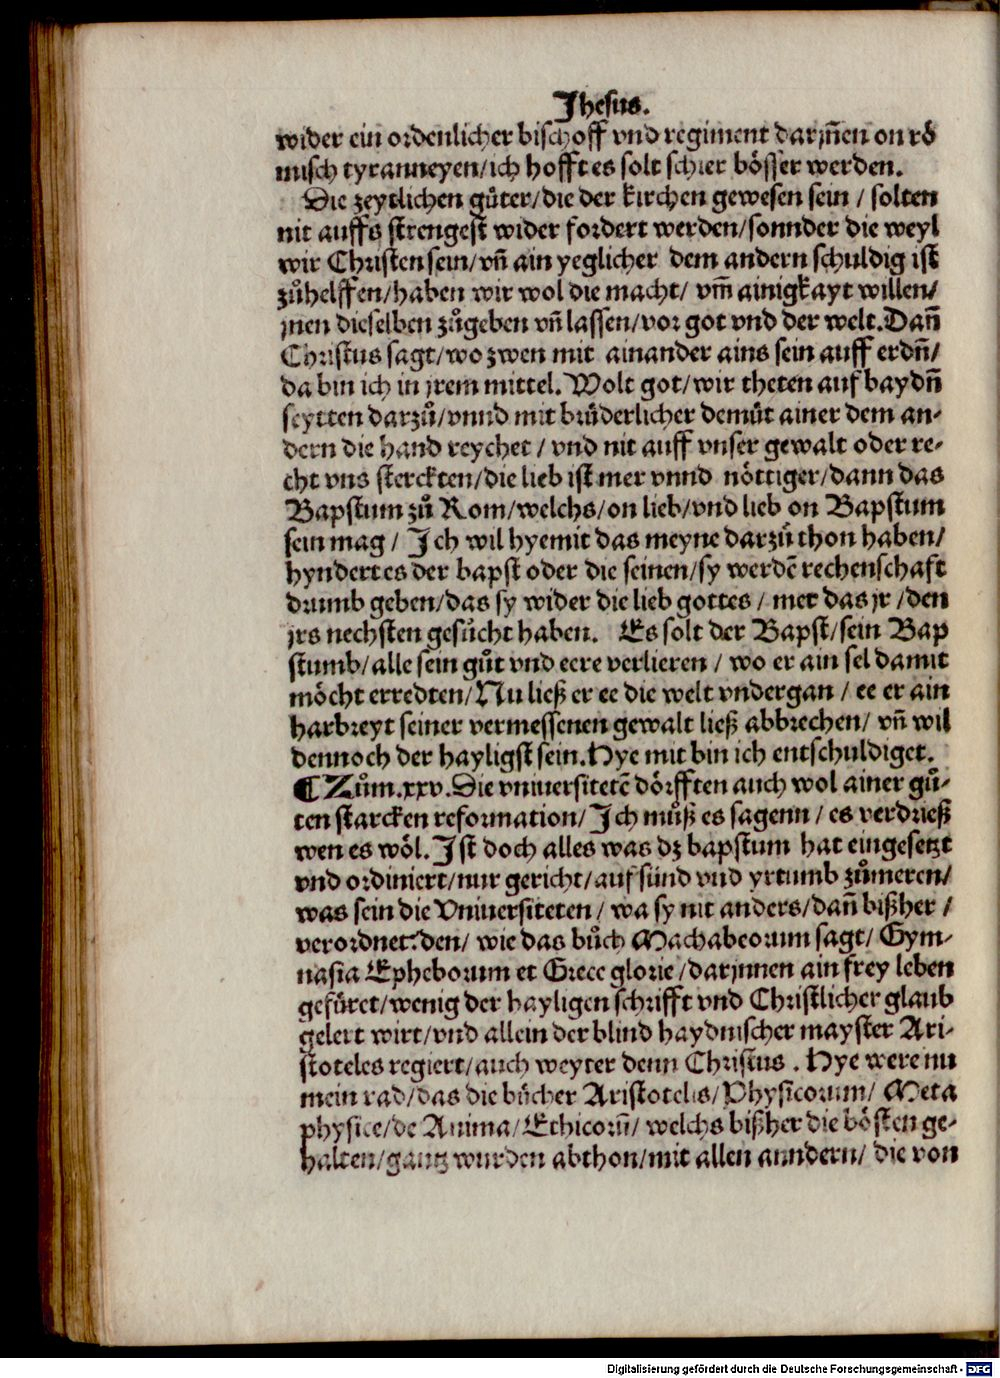 Jhesus.
wider ein ordenlicher bischoff vnd regiment darjn̄en on rö
misch tyranneyen/ich hofft es solt schier bösser werden.
Die zeytlichen gůter/die der kirchen gewesen sein / solten
nit auffs strengest wider fordert werden/sonnder die weyl
wir Christen sein/vn̄ ain yeglicher dem andern schuldig ist
zůhelffen/haben wir wol die macht/ vm̄ ainigkayt willen/
jnen dieselben zůgeben vn̄ lassen/vor got vnd der welt.Dan̄
Christus sagt/wo zwen mit ainander ains sein auff erdn̄/
da bin ich in jrem mittel.Wolt got/wir theten auf baydn̄
seytten darzů/vnnd mit brůderlicher demůt ainer dem an-
dern die hand reychet / vnd nit auff vnser gewalt oder re-
cht vns sterckten/die lieb ist mer vnnd nöttiger/dann das
Bapstum zů Rom/welchs/on lieb/vnd lieb on Bapstum
sein mag / Ich wil hyemit das meyne darzů thon haben/
hyndert es der bapst oder die seinen/sy werdē rechenschaft
drumb geben/das sy wider die lieb gottes / mer das jr /den
jrs nechsten gesůcht haben. Es solt der Bapst/sein Bap
stumb/alle sein gůt vnd eere verlieren / wo er ain sel damit
möcht erredten/Nu ließ er ee die welt vndergan / ee er ain
harbreyt seiner vermessenen gewalt ließ abbrechen/ vn̄ wil
dennoch der hayligst sein.Hye mit bin ich entschuldiget.
¶ Zům.xxv.Die vniuersitetē dörfften auch wol ainer gů-
ten starcken reformation/ Ich můß es sagenn / es verdrieß
wen es wöl.Ist doch alles was dz bapstum hat eingesetzt
vnd ordiniert/nur gericht/auf sünd vnd yrtumb zůmeren/
was sein die Vniuersiteten / wa sy nit anders/dan̄ bißher /
verordnet:den/ wie das bůch Machabeorum sagt/ Gym-
nasia Epheborum et Grece glorie /darjnnen ain frey leben
gefüret/wenig der hayligen schrifft vnd Christlicher glaub
gelert wirt/vnd allein der blind haydnischer mayster Ari-
stoteles regiert/auch weyter denn Christus . Hye were nu
mein rad/das die bücher Aristotelis/Physicorum/ Meta
physice/de Anima/Ethicorū/ welchs bißher die bösten ge-
halten/gantz wurden abthon/mit allen anndern/ die von
Digitalisierung gefördert durch die Deutsche Forschungsgemeinschaft - DFG